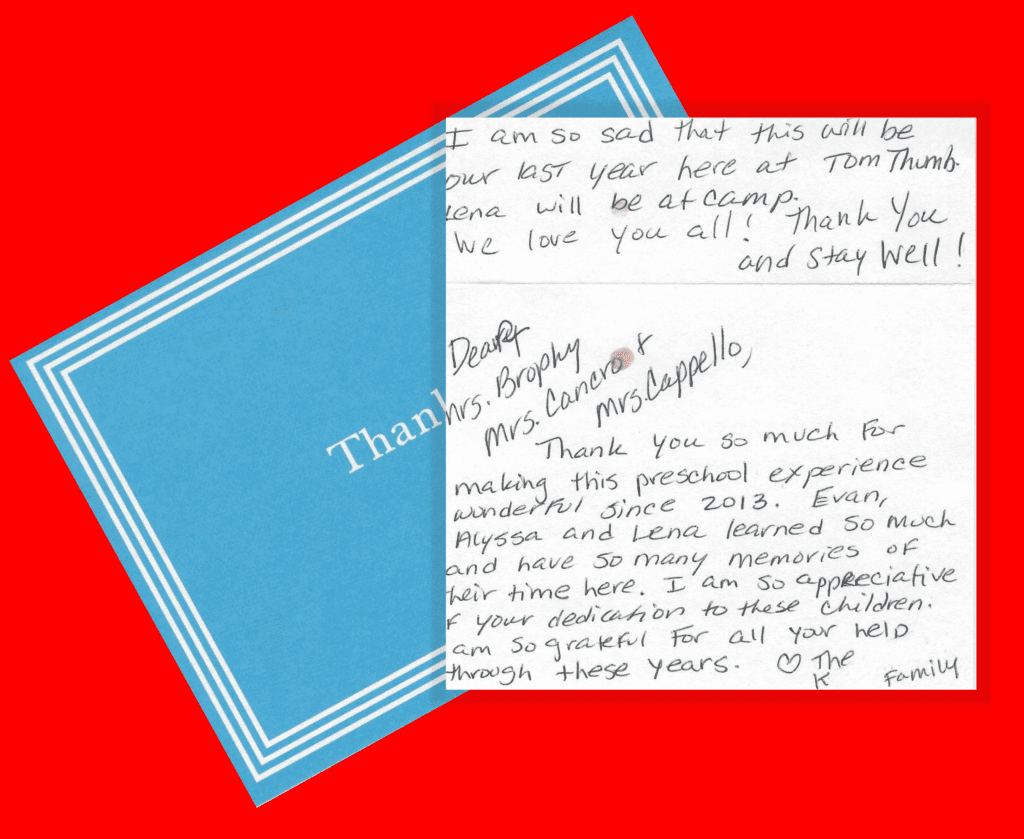 Thank
I am so sad that this will be
our last year here at Tom Thumb.
Lena will be at camp.
We love you all! Thank You
and Stay Well!
Dear
Mrs. Brophy
Mrs. Cancro &
Mrs. Cappello,
Thank you so much for
making this preschool experience
wonderful since 2013. Evan,
Alyssa and Lena learned so much
and have so many memories of
their time here. I am so appreciative
f your dedication to these children.
am so grateful for all your help
through these years. ♡ The
K Family